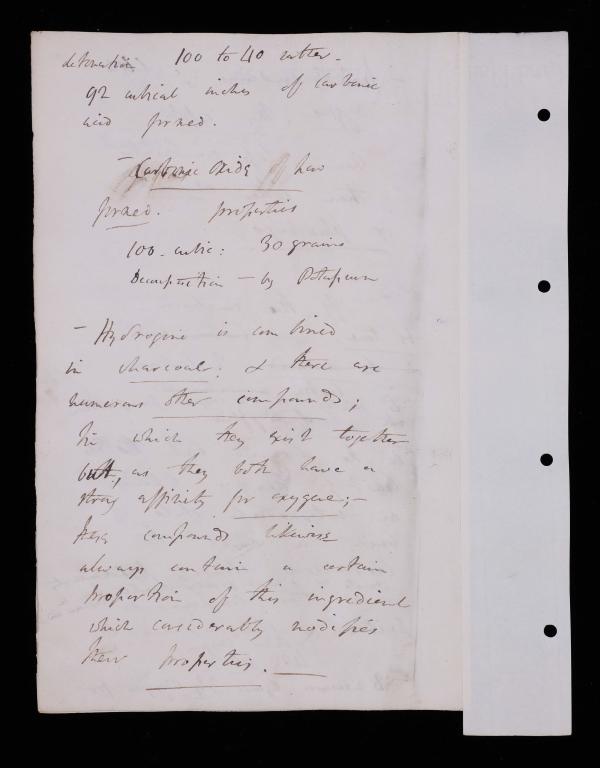 detonation 100 to 40 rather -
92 cubical inches of carbonic
acid formed.
- Carbonic oxide how
formed. properties
100 - cubic: 30 grains
Decomposition - by Potassium
- Hydrogene is combined
in charcoal: & there are
numerous other compounds;
in which they exist together
but, as they both have a
strong affinity for oxygene; -
these compounds likewise
always contain a certain
proportion of this ingredient
which considerably modifies
their properties. -